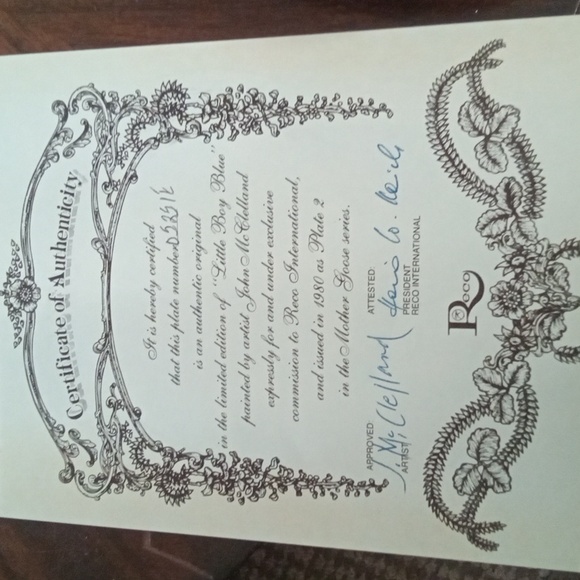 Certificate of Authenticity
It is hereby certified
that this plate number
is an authentic original
in the limited edition of "Little Boy Blue"
painted by artist John McClelland
expressly for and under exclusive
commission to Reco International,
and issued in 1980 as Plate 2
in the Mother Goose series.
APPROVED
ARTIST
J McClelland
ATTESTED
PRESIDENT
RECO INTERNATIONAL
Reco